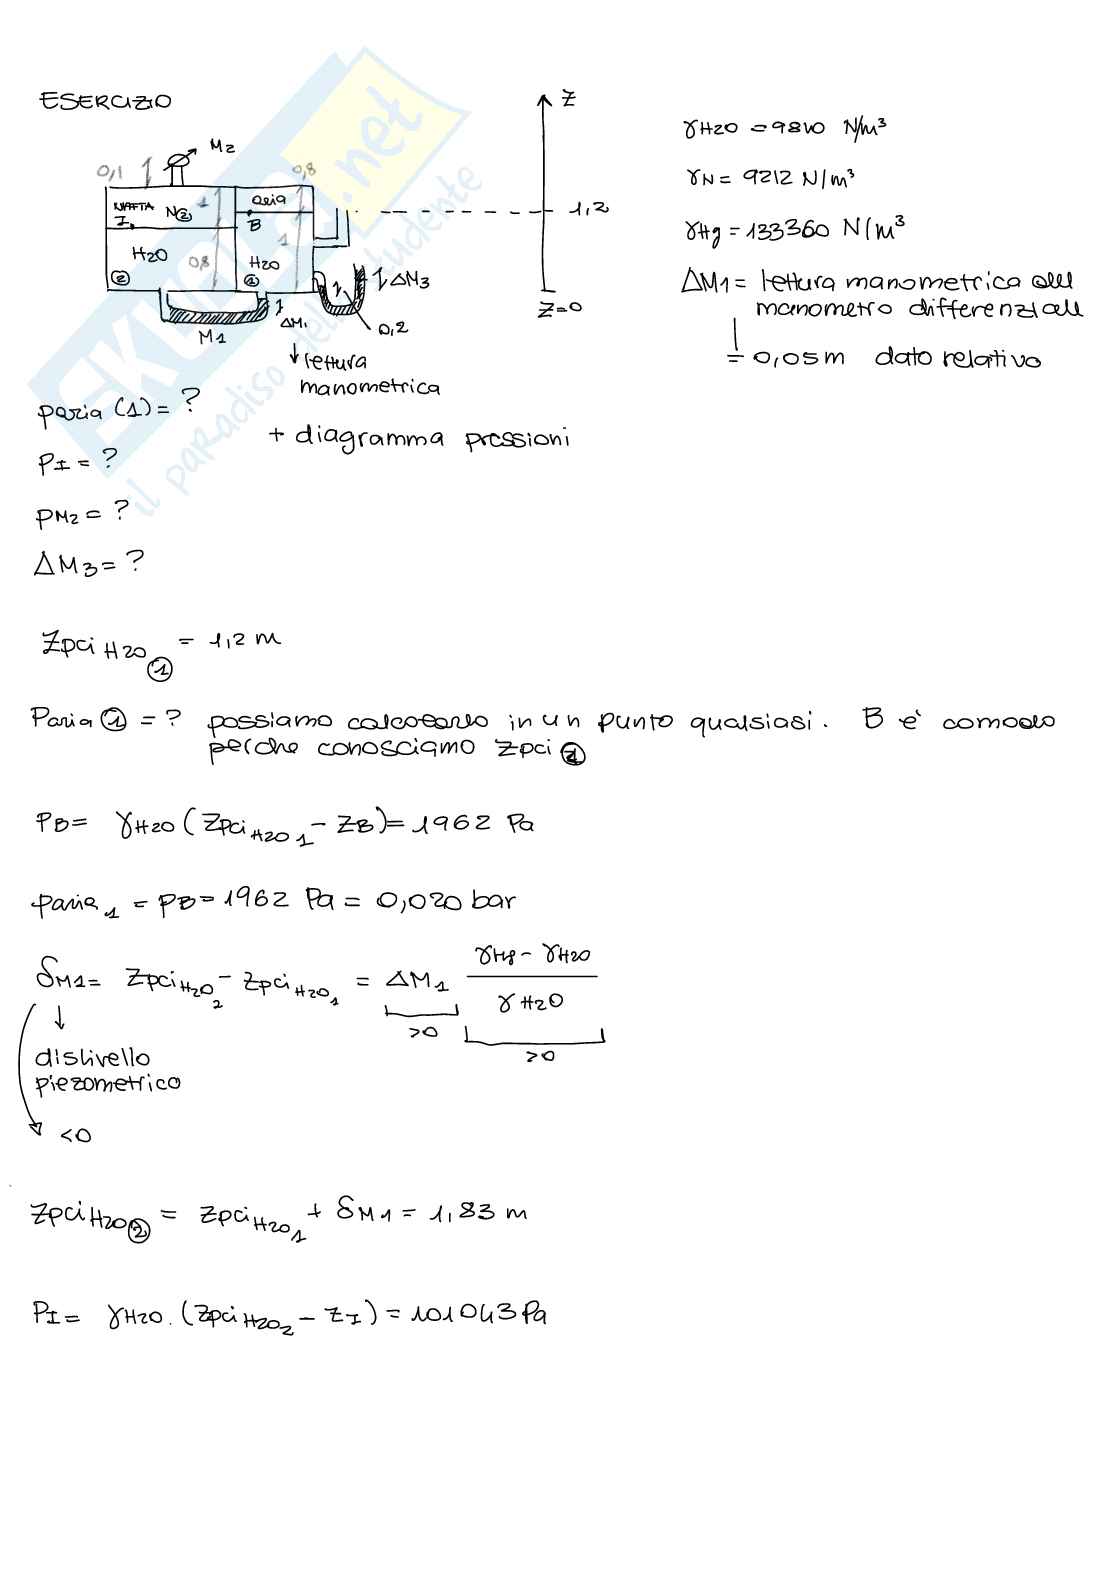 ESERCIZIO
M2
0,1
0,8
Z
NAFTA N②
1
aria
I.
B
1,2
H2O
0,8
1
H2O
②
①
ΔM3
Z=0
ΔM1
0,2
M1
↓ lettura
manometrica
γH2O = 9810 N/m³
γN = 9212 N/m³
γHg = 133360 N/m³
ΔM1 = lettura manometrica del
manometro differenziale
= 0,05m dato relativo
paria (1) = ?
+ diagramma pressioni
PI = ?
PM2 = ?
ΔM3 = ?
ZpciH2O① = 1,2 m
Paria ① = ? possiamo calcolarlo in un punto qualsiasi. B è comodo
perche conosciamo Zpci
PB = γH2O (ZpciH2O1 - ZB) = 1962 Pa
paria1 = PB = 1962 Pa = 0,020 bar
δM1 = ZpciH2O2 - ZpciH2O1 = ΔM1 (γHg - γH2O) / γH2O
>0
>0
↓
dislivello
piezometrico
<0
ZpciH2O② = ZpciH2O1 + δM1 = 1,83 m
PI = γH2O . (ZpciH2O2 - ZI) = 101043 Pa
SKUOLA.net
il paradiso dello studente